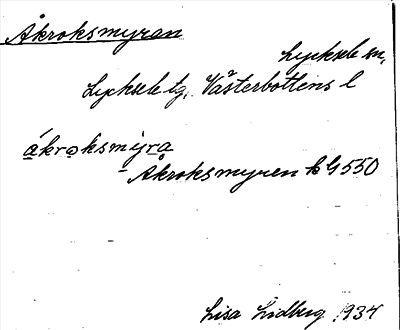 Åkroksmyran
Lycksele sn,
Lycksele tg, Västerbottens l
åkroksmýra
Åkroksmyren k G 550
Lisa Lidberg 1934